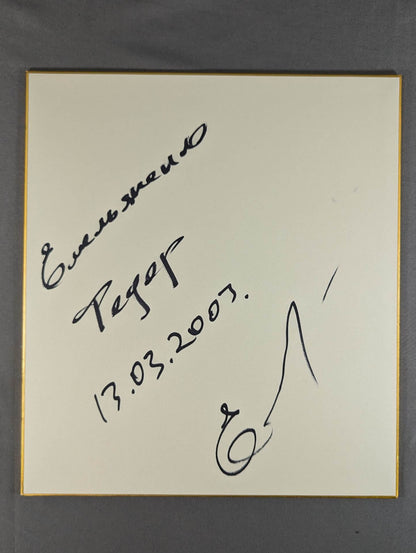 Емельяненко
Федор
13.03.2003.